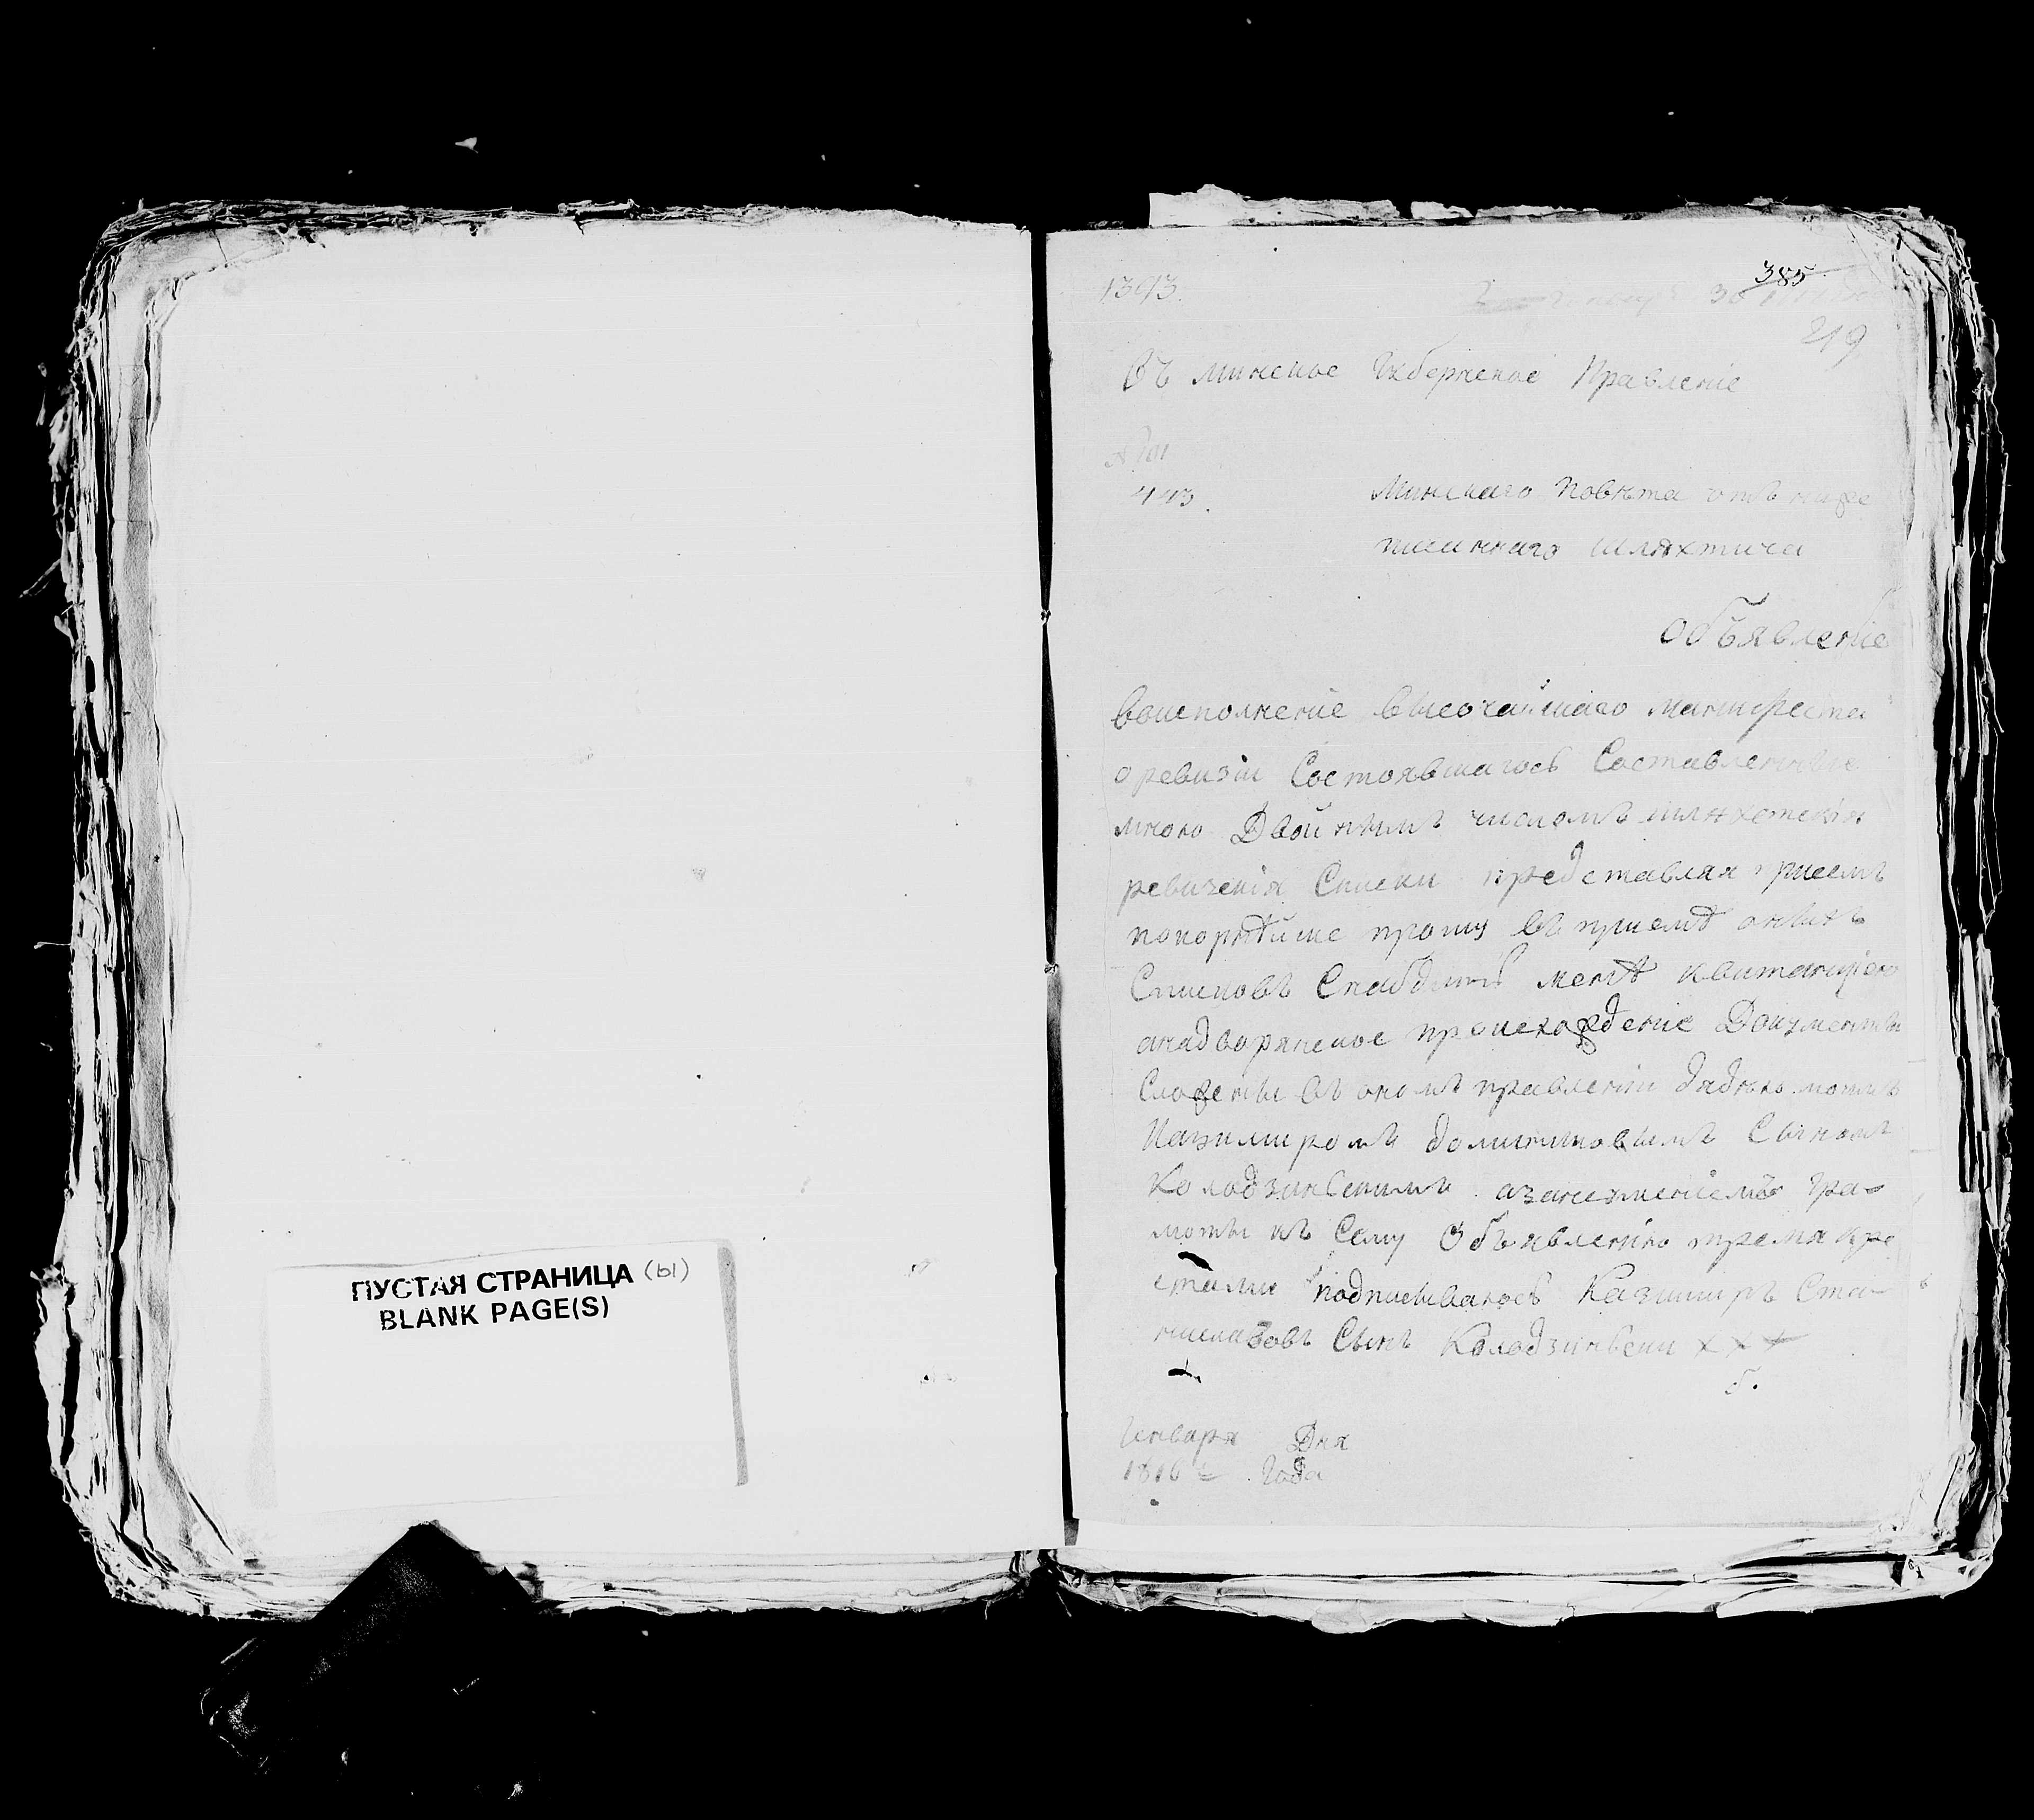 ПУСТАЯ СТРАНИЦА (ы)
BLANK PAGE(S)
1393.
385
30
219
Въ минское Губернское Правленіе
443.
Минскаго повѣта отъ ниже
писаннаго шляхтича
Объявленіе
воисполненіе высочайшаго манифеста
оревизіи Состоявшагось Составленные
мною Двойнымъ числомъ шляхетскія
ревизскія Списки представляя присемъ
покорнѣйше прошу въ пріемѣ оныхъ
Списковъ Снабдить менѣ квитанціею
анадворянское происхождение Документы
Сложены въ ономъ правленіи дядькомъ моимъ
Казимиромъ доминиковымъ Сыномъ
Колодзинскимъ азанеумѣніемъ гра-
моты къ Сему Объявленію тремя кре
стами подписываюсь Казимиръ Ста-
ниславовъ Сынъ Колодзиньски х х х
Генваря Дня
1816 Года